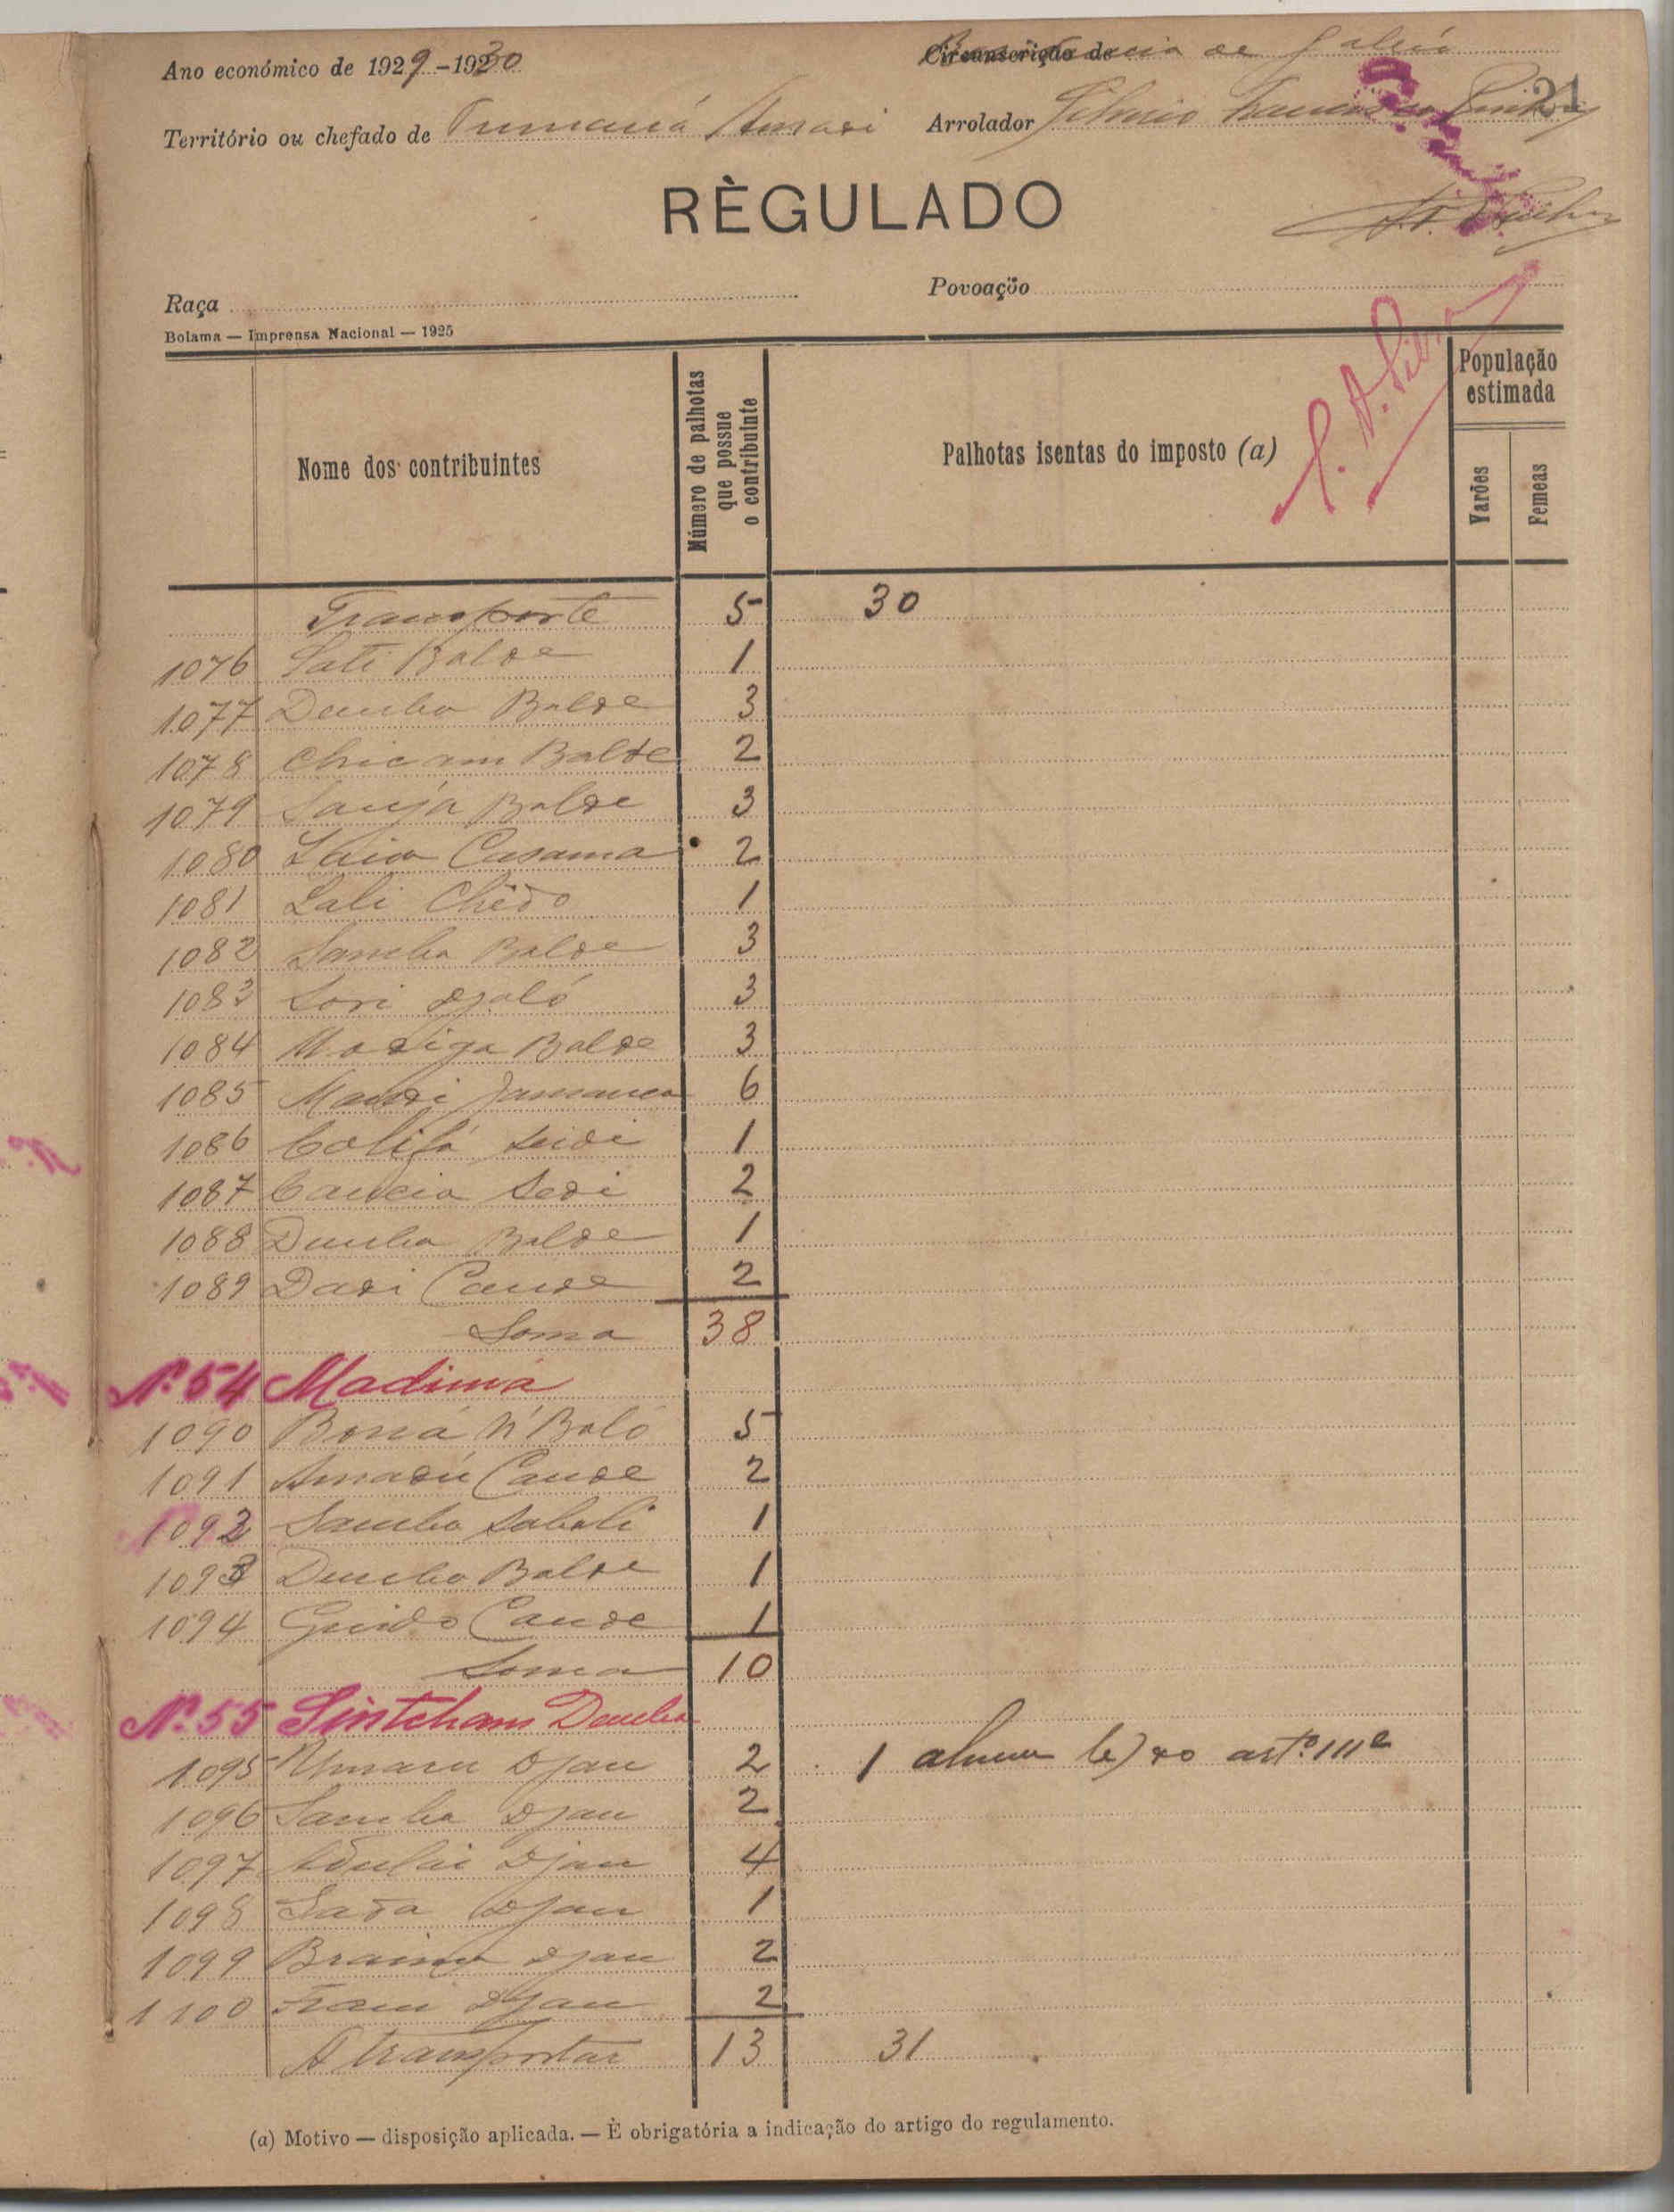 Ano económico de 1929-1930
Circunscrição de
21
Território ou chefado de
Arrolador
RÈGULADO
Raça
Povoação
Bolama — Imprensa Nacional — 1925
Nome dos contribuintes
Número de palhotas que possue o contribuinte
Palhotas isentas do imposto (a)
População estimada
Varões
Femeas
Transporte 5 30
1076 Sati Balde 1
1077 Demba Balde 3
1078 Balde 2
1079 Balde 3
1080 Casama 2
1081 Lali Chêdo 1
1082 Samba Balde 3
1083 Sori Djaló 3
1084 Balde 3
1085 6
1086 Seidi 1
1087 Sedi 2
1088 Demba Balde 1
1089 Dadi Cande 2
Soma 38
Nº 54 Madina
1090 5
1091 Amadú Cande 2
1092 Samba Sabali 1
1093 Demba Balde 1
1094 Guido Cande 1
Soma 10
Nº 55 Sintcham Demba
1095 Umaru Djau 2 1 artº
1096 Samba Djau 2
1097 Adulai Djau 4
1098 Sada Djau 1
1099 Braima Djau 2
1100 Djau 2
A transportar 13 31
(a) Motivo — disposição aplicada. — È obrigatória a indicação do artigo do regulamento.